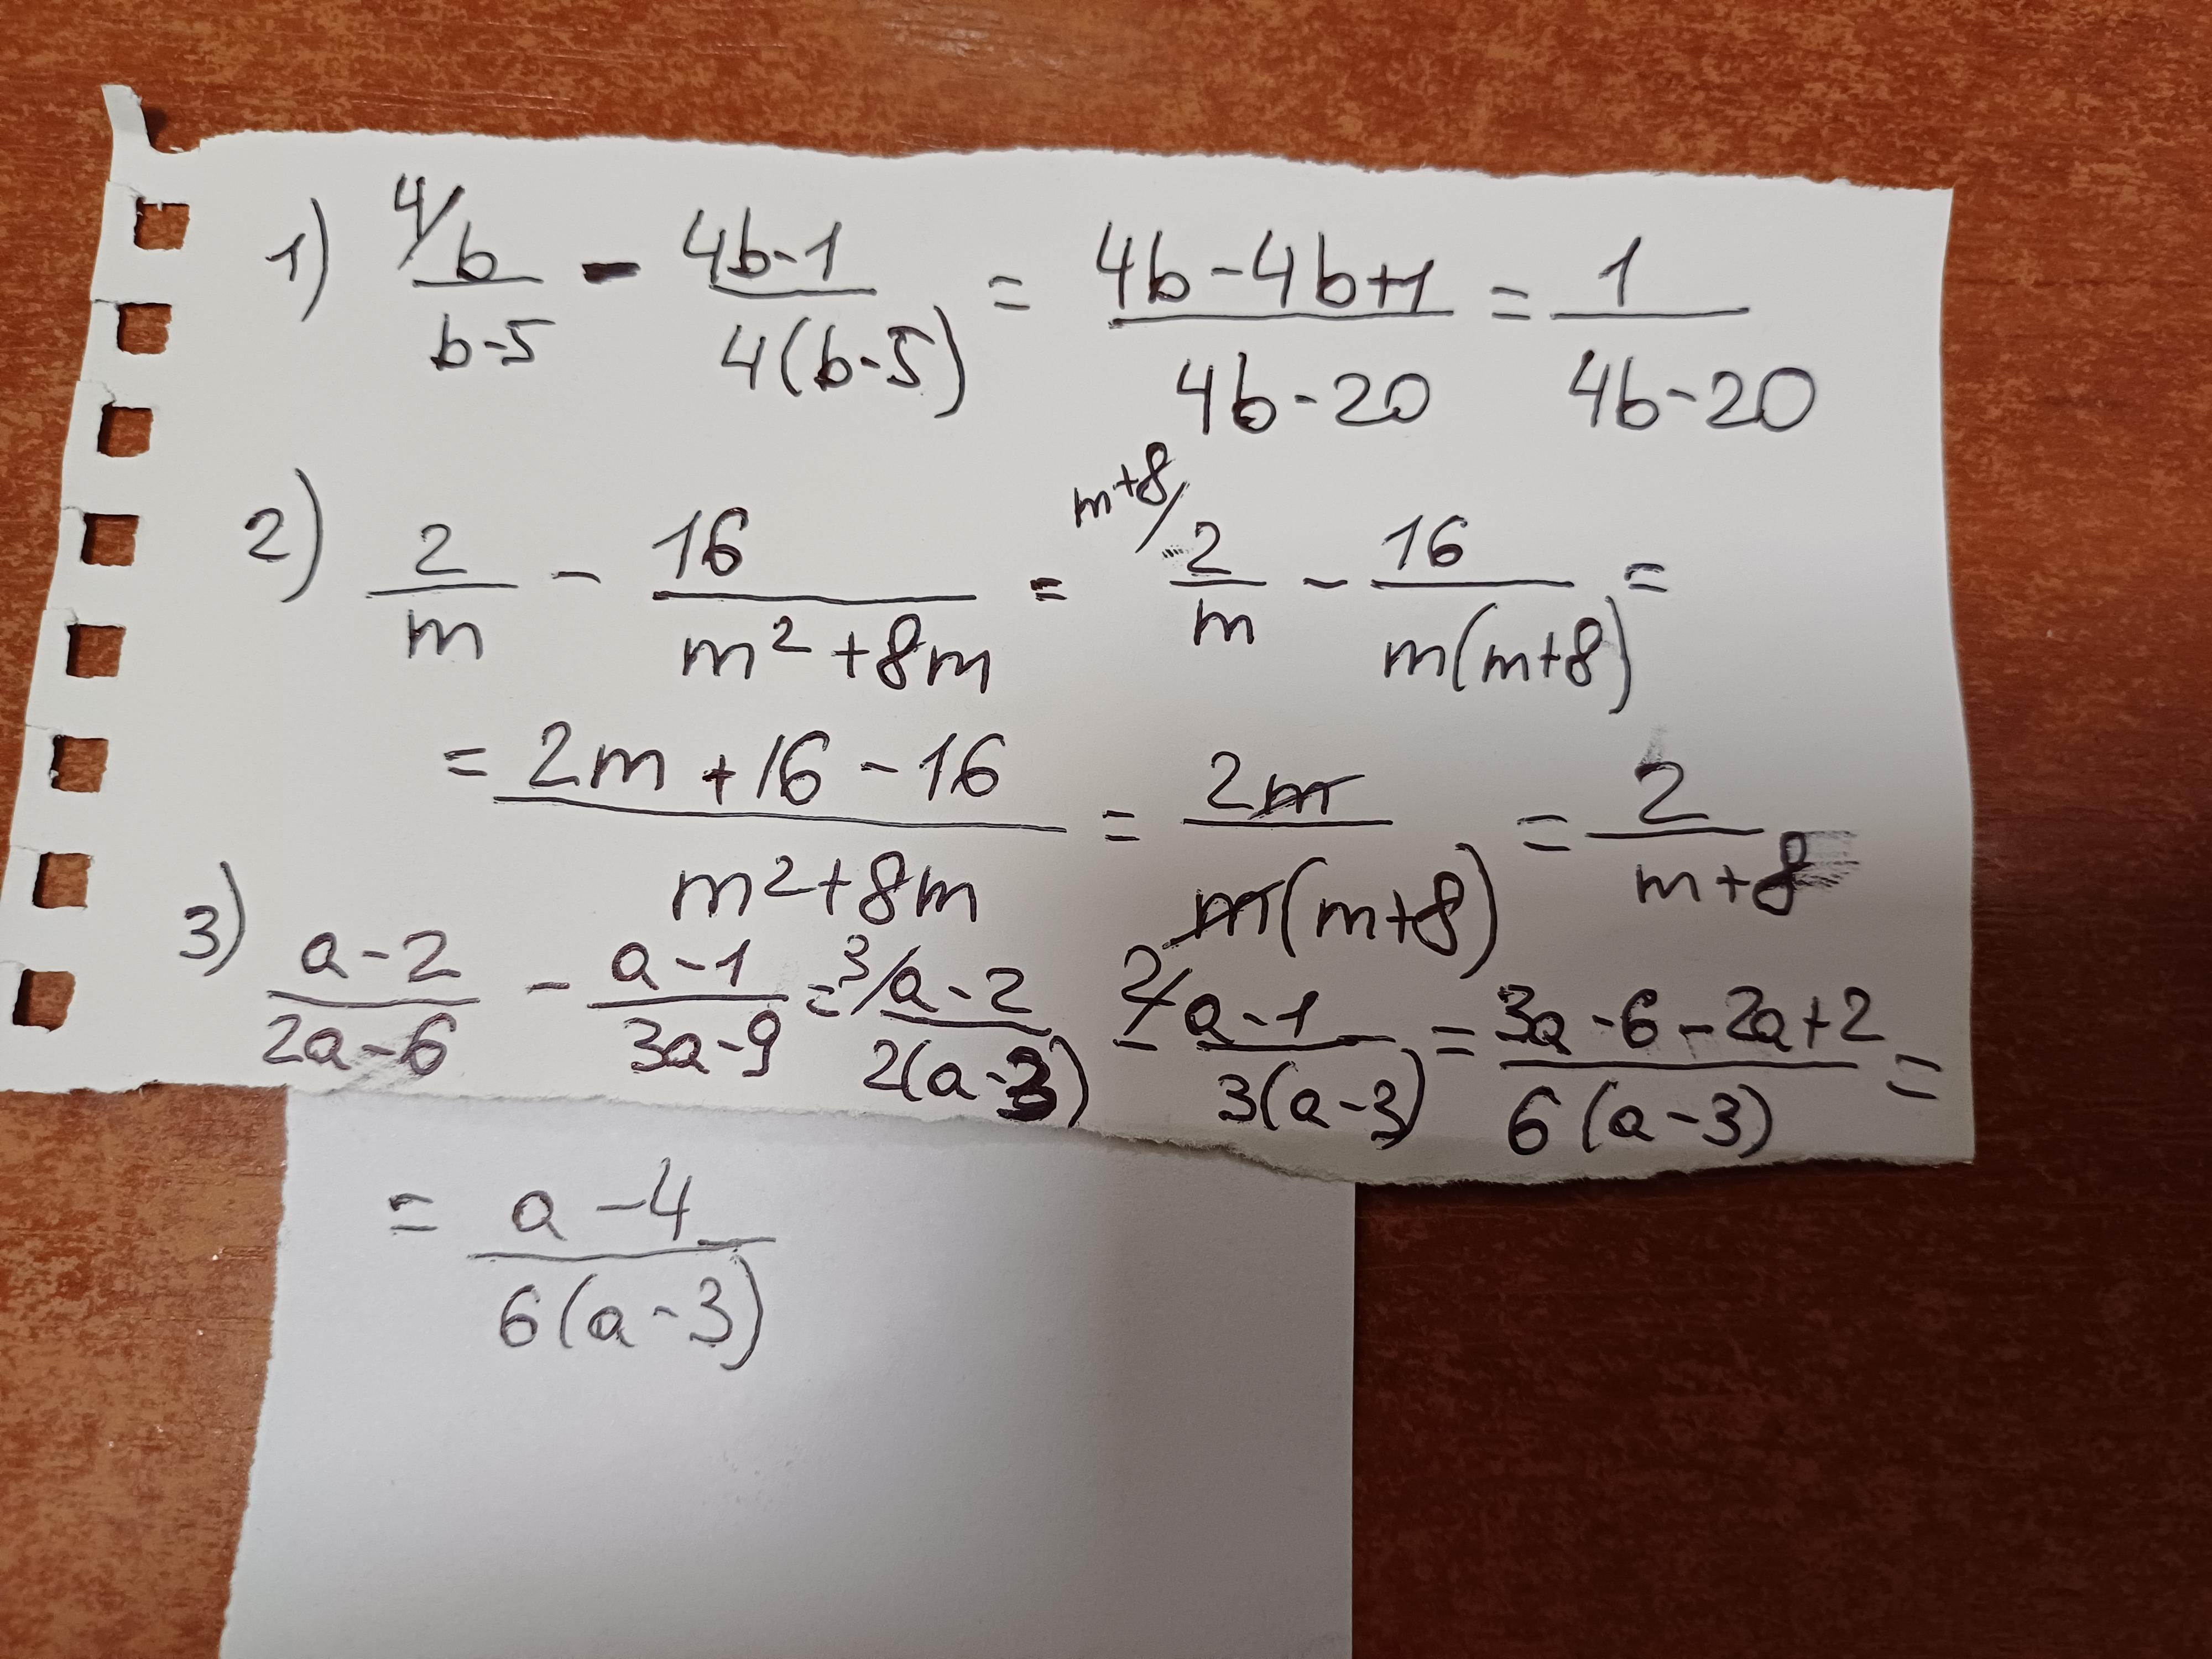 1) 4/ b/(b-5) - (4b-1)/(4(b-5)) = (4b-4b+1)/(4b-20) = 1/(4b-20)
2) 2/m - 16/(m²+8m) = m+8/ 2/m - 16/(m(m+8)) =
= (2m+16-16)/(m²+8m) = 2m/(m(m+8)) = 2/(m+8)
3) (a-2)/(2a-6) - (a-1)/(3a-9) = 3/ (a-2)/(2(a-3)) - 2/ (a-1)/(3(a-3)) = (3a-6-2a+2)/(6(a-3)) =
= (a-4)/(6(a-3))